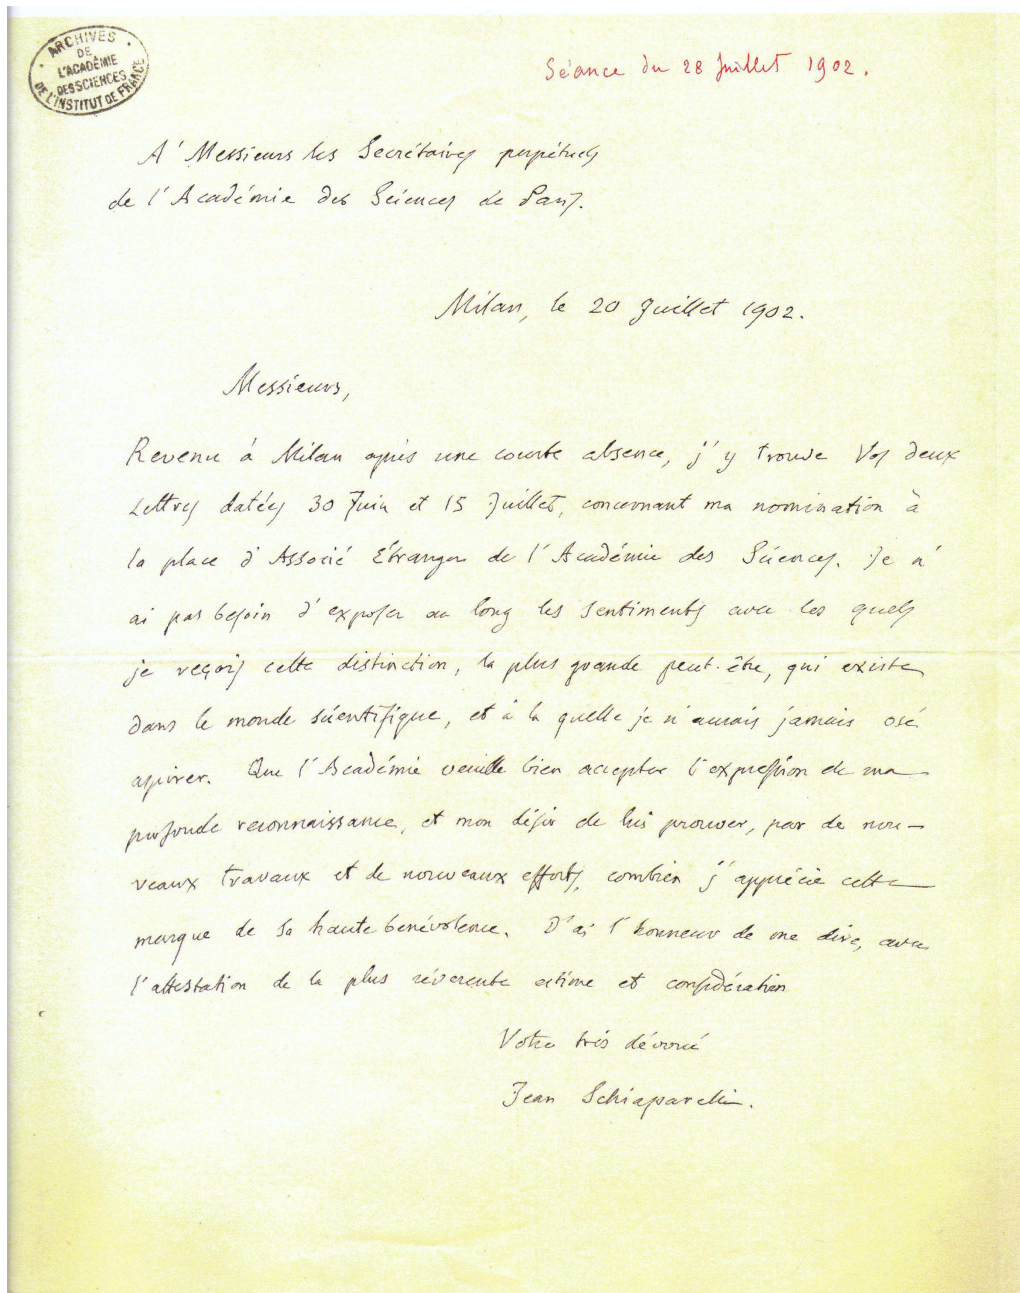 ARCHIVES
DE
L'ACADÉMIE
DES SCIENCES
DE L'INSTITUT DE FRANCE
Séance du 28 Juillet 1902.
A' Messieurs les Secrétaires perpétuels
de l'Académie des Sciences de Paris.
Milan, le 20 Juillet 1902.
Messieurs,
Revenu à Milan après une courte absence, j'y trouve Vos deux
Lettres datées 30 Juin et 15 Juillet, concernant ma nomination à
la place d'Associé Etranger de l'Académie des Sciences. Je n'
ai pas besoin d'exposer au long les sentiments avec les quels
je reçois cette distinction, la plus grande peut-être, qui existe
dans le monde scientifique, et à la quelle je n'aurais jamais osé
aspirer. Que l'Académie veuille bien accepter l'expression de ma
profonde reconnaissance, et mon désir de lui prouver, par de nou-
veaux travaux et de nouveaux efforts, combien j'apprécie cette
marque de sa haute benévolence. J'ai l'honneur de me dire, avec
l'attestation de la plus révérente estime et considération
Votre très dévoué
Jean Schiaparelli.